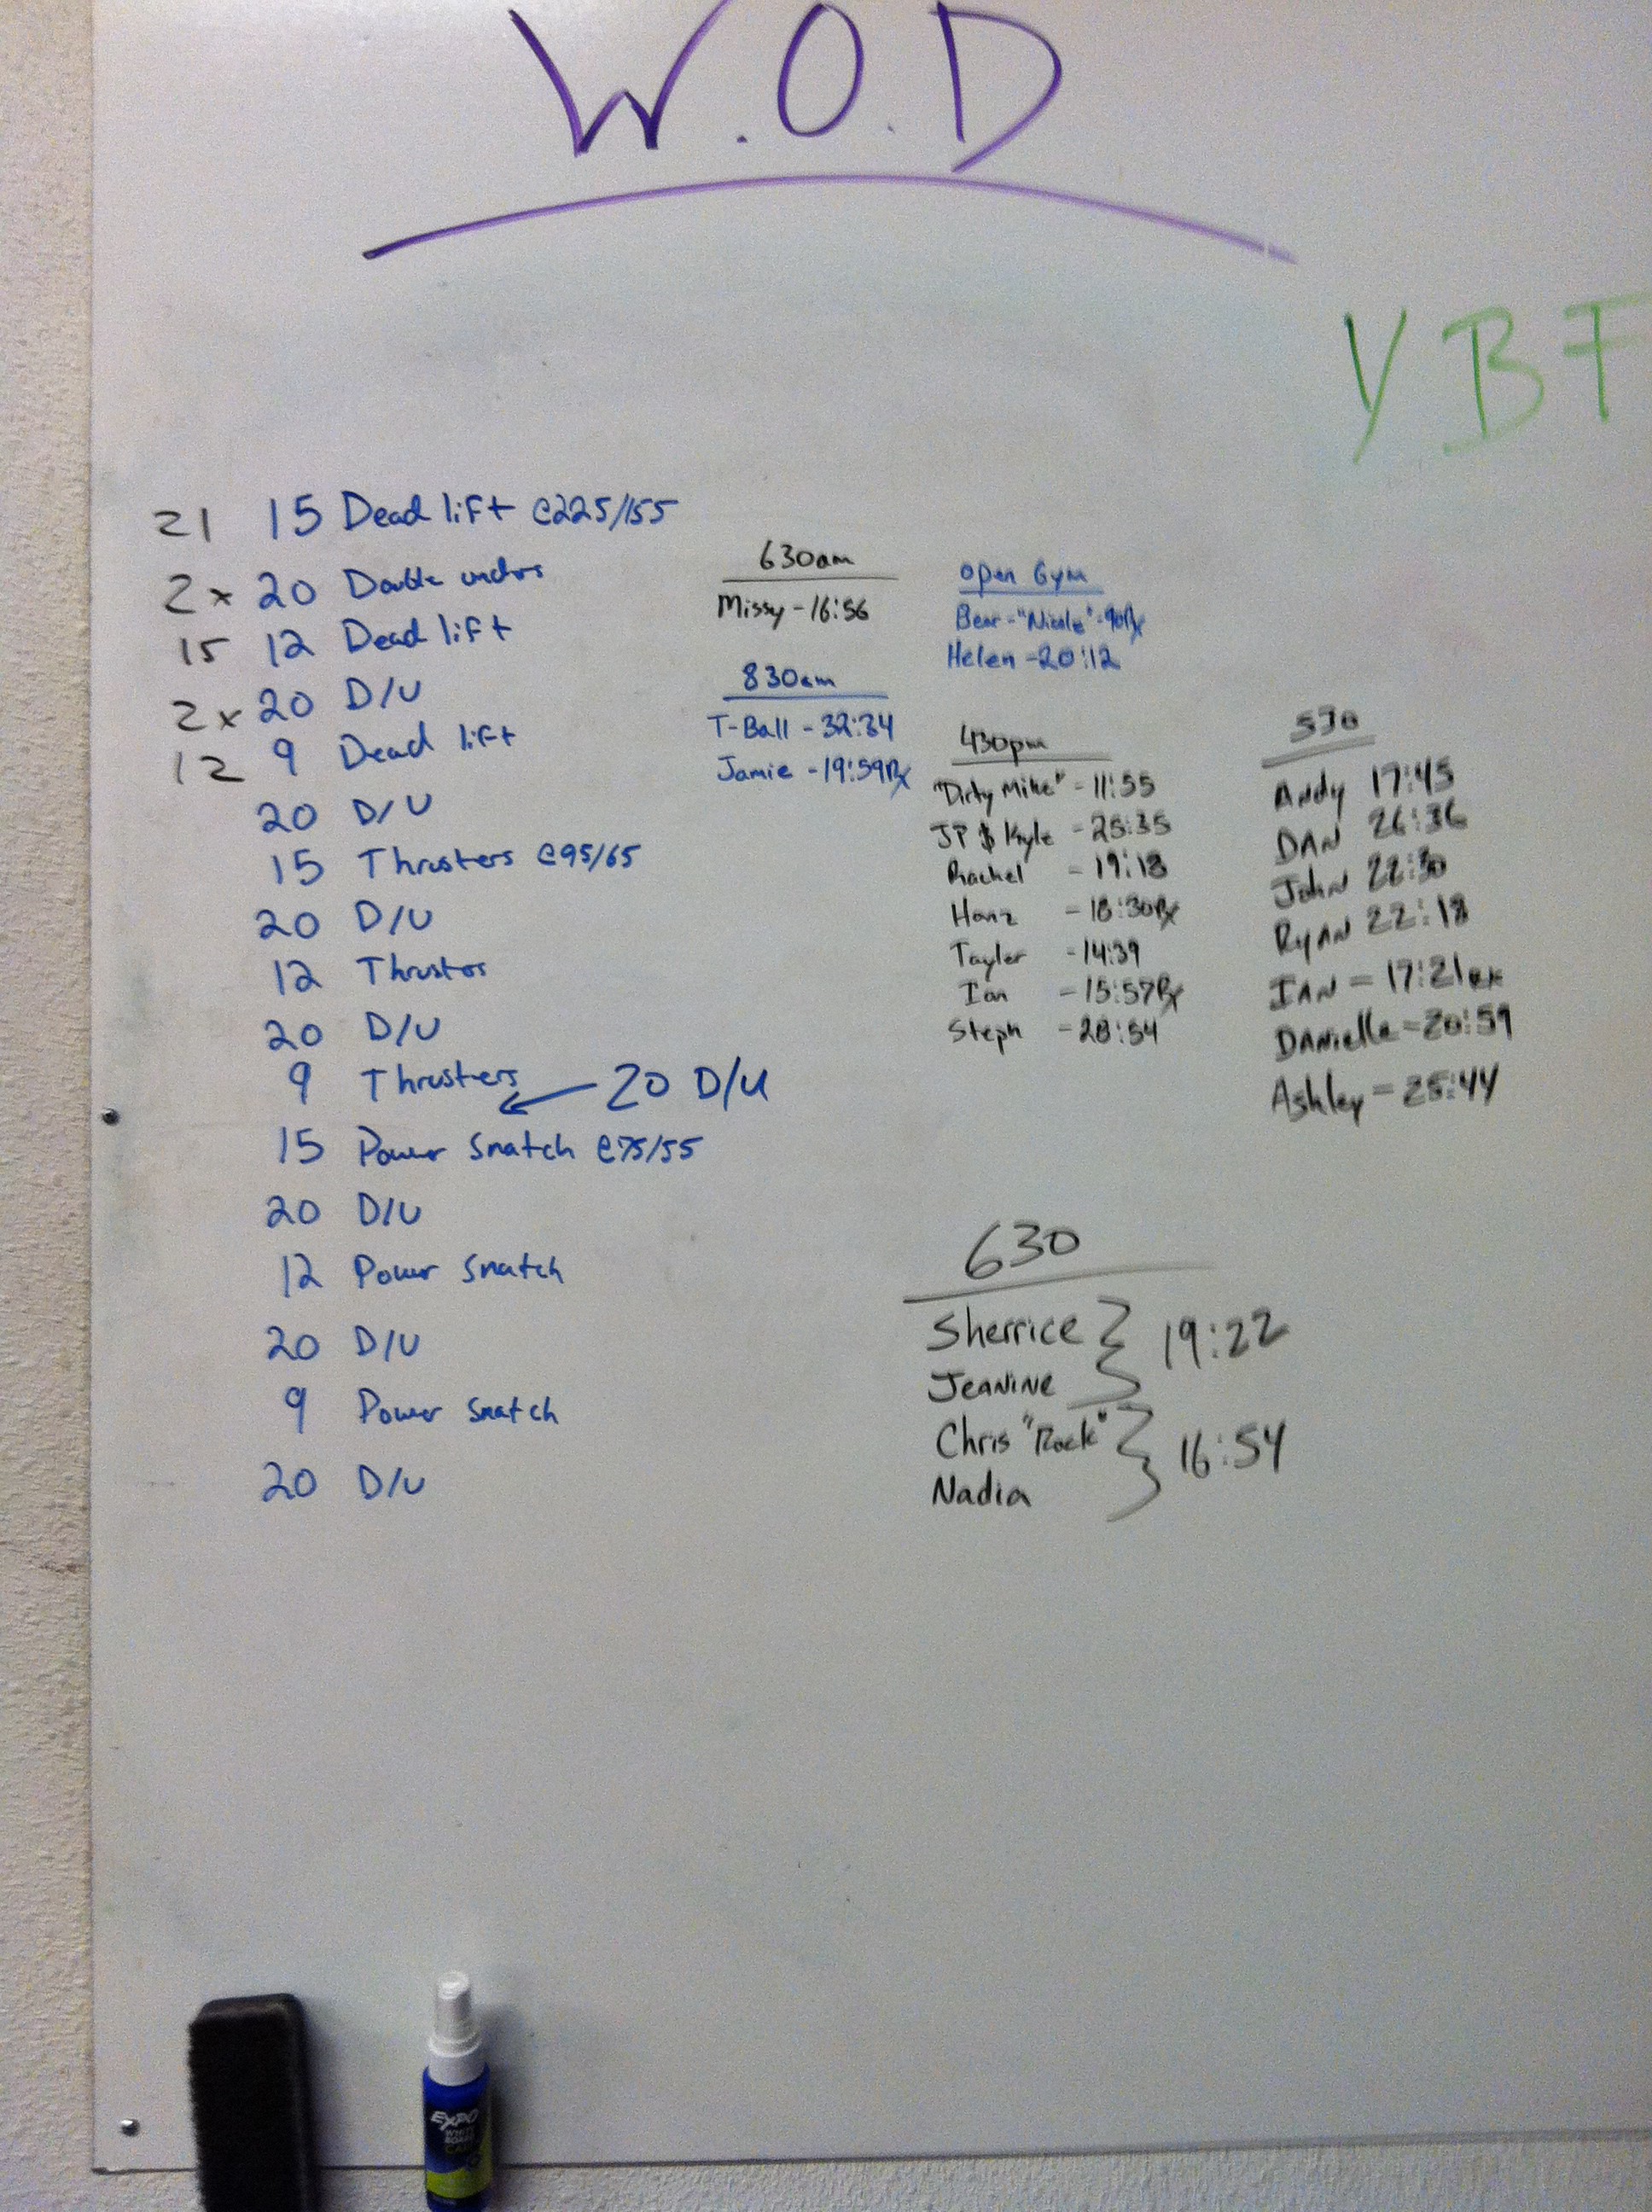 W.O.D
YBF
21 15 Dead lift @225/155
2x 20 Double unders
15 12 Dead lift
2x 20 D/U
12 9 Dead lift
20 D/U
15 Thrusters @95/65
20 D/U
12 Thrusters
20 D/U
9 Thrusters 20 D/U
15 Power Snatch @75/55
20 D/U
12 Power Snatch
20 D/U
9 Power Snatch
20 D/U
630am
Missy - 16:56
830am
T-Ball - 32:34
Jamie - 19:59Rx
Open Gym
Bear - "Nicole" - 90Rx
Helen - 20:12
430pm
"Dirty Mike" - 11:55
JP & Kyle - 25:35
Rachel - 19:18
Hanz - 18:30Rx
Tayler - 14:39
Ian - 15:57Rx
Steph - 28:54
530
Andy 17:45
DAN 26:36
John 22:30
RyAN 22:18
IAN = 17:21RX
DANielle = 20:59
Ashley = 25:44
630
Sherrice
Jeanine
19:22
Chris "Rock"
Nadia
16:54
EXPO
WHITE
BOARD